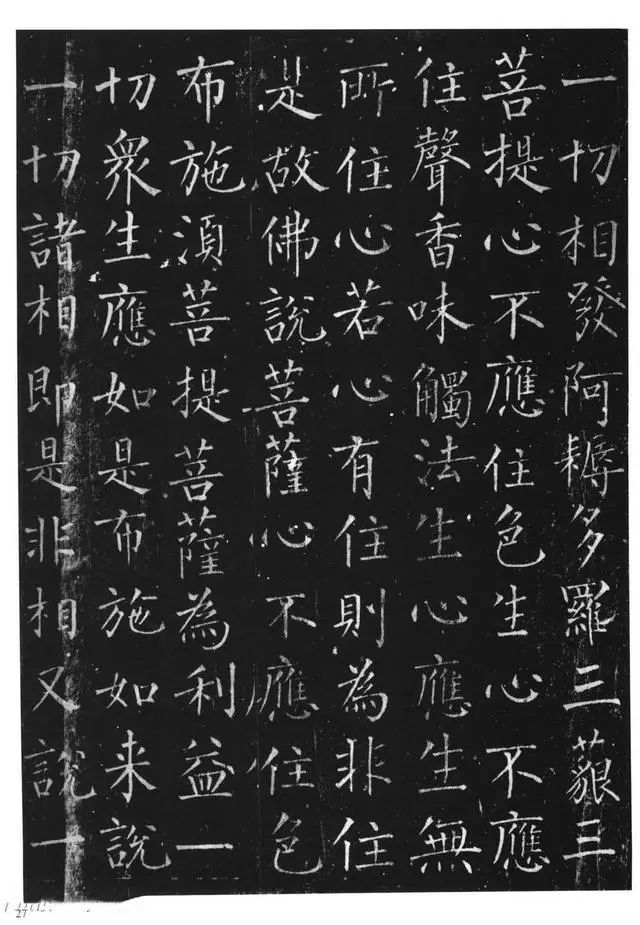 一切相發阿耨多羅三藐三
菩提心不應住色生心不應
住聲香味觸法生心應生無
所住心若心有住則為非住
是故佛說菩薩心不應住色
布施須菩提菩薩為利益一
切衆生應如是布施如来說
一切諸相即是非相又說一